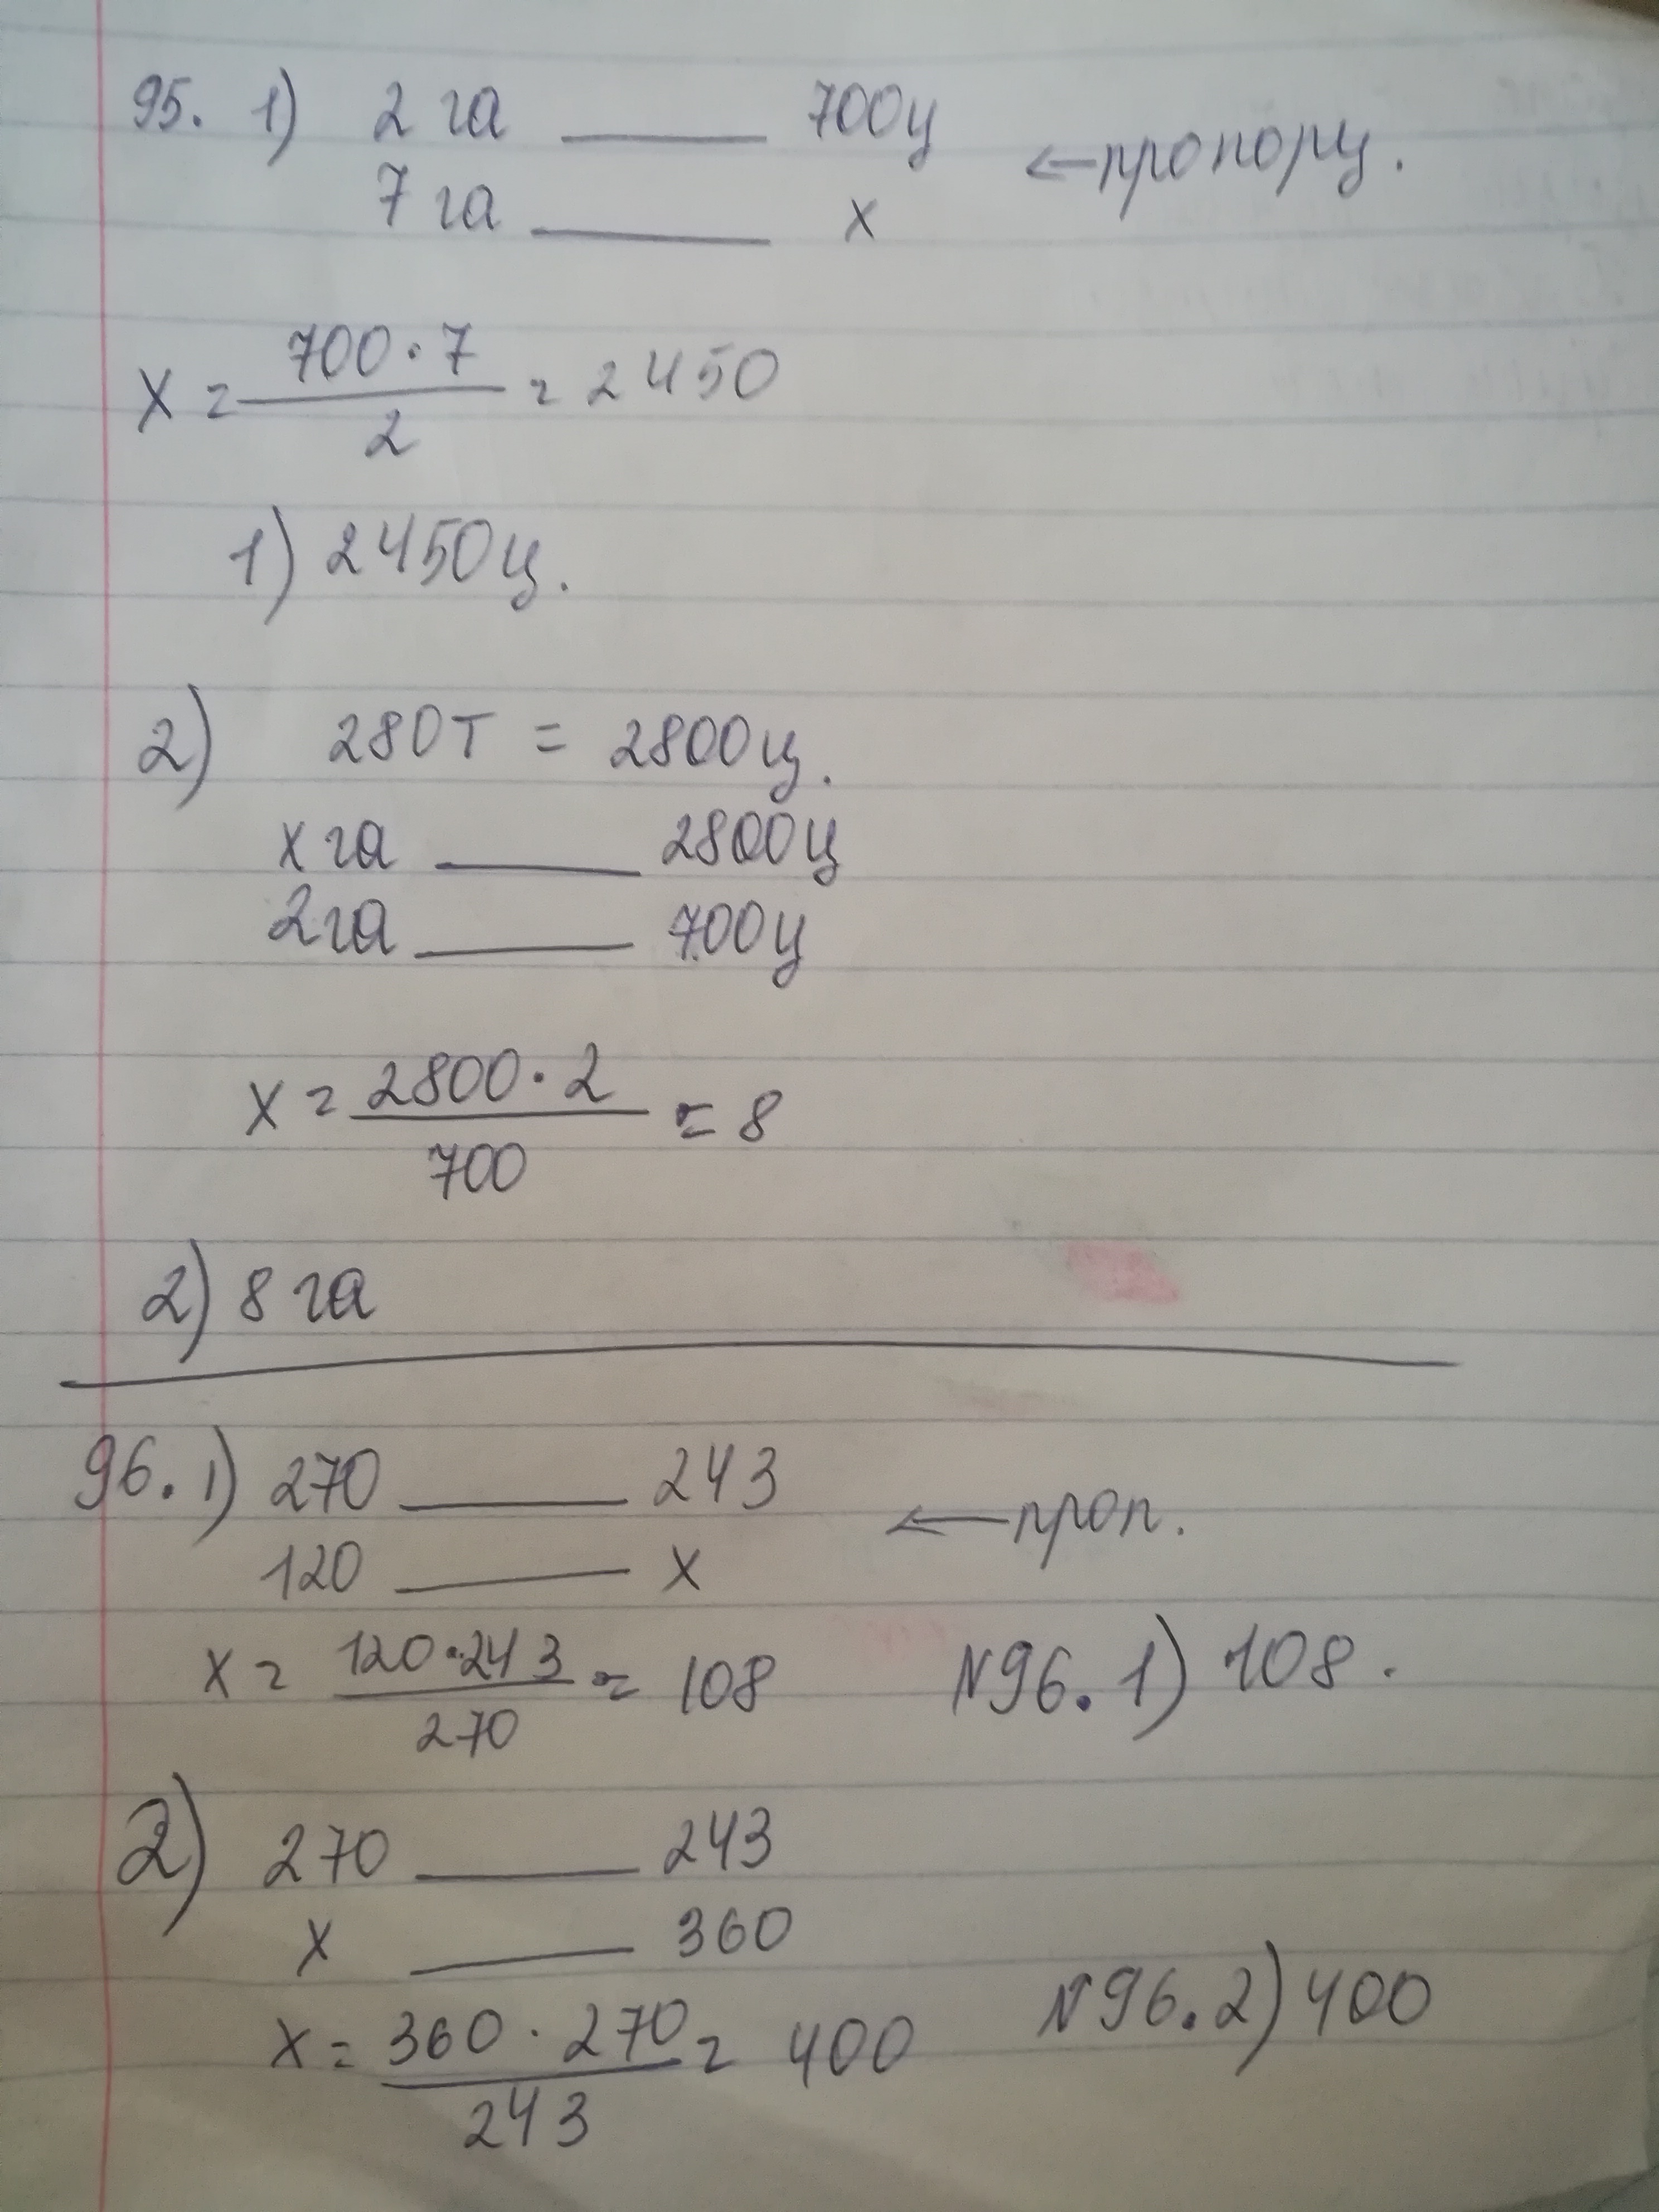 95. 1) 2 га —— 700ц
7 га —— х ← пропорц.
х = 700·7 / 2 = 2450
1) 2450ц.
2) 280т = 2800ц.
х га —— 2800ц
2га —— 700ц
х = 2800·2 / 700 = 8
2) 8 га
96. 1) 270 —— 243
120 —— х ← проп.
х = 120·243 / 270 = 108 N96. 1) 108.
2) 270 —— 243
х —— 360
х = 360·270 / 243 = 400 N96. 2) 400